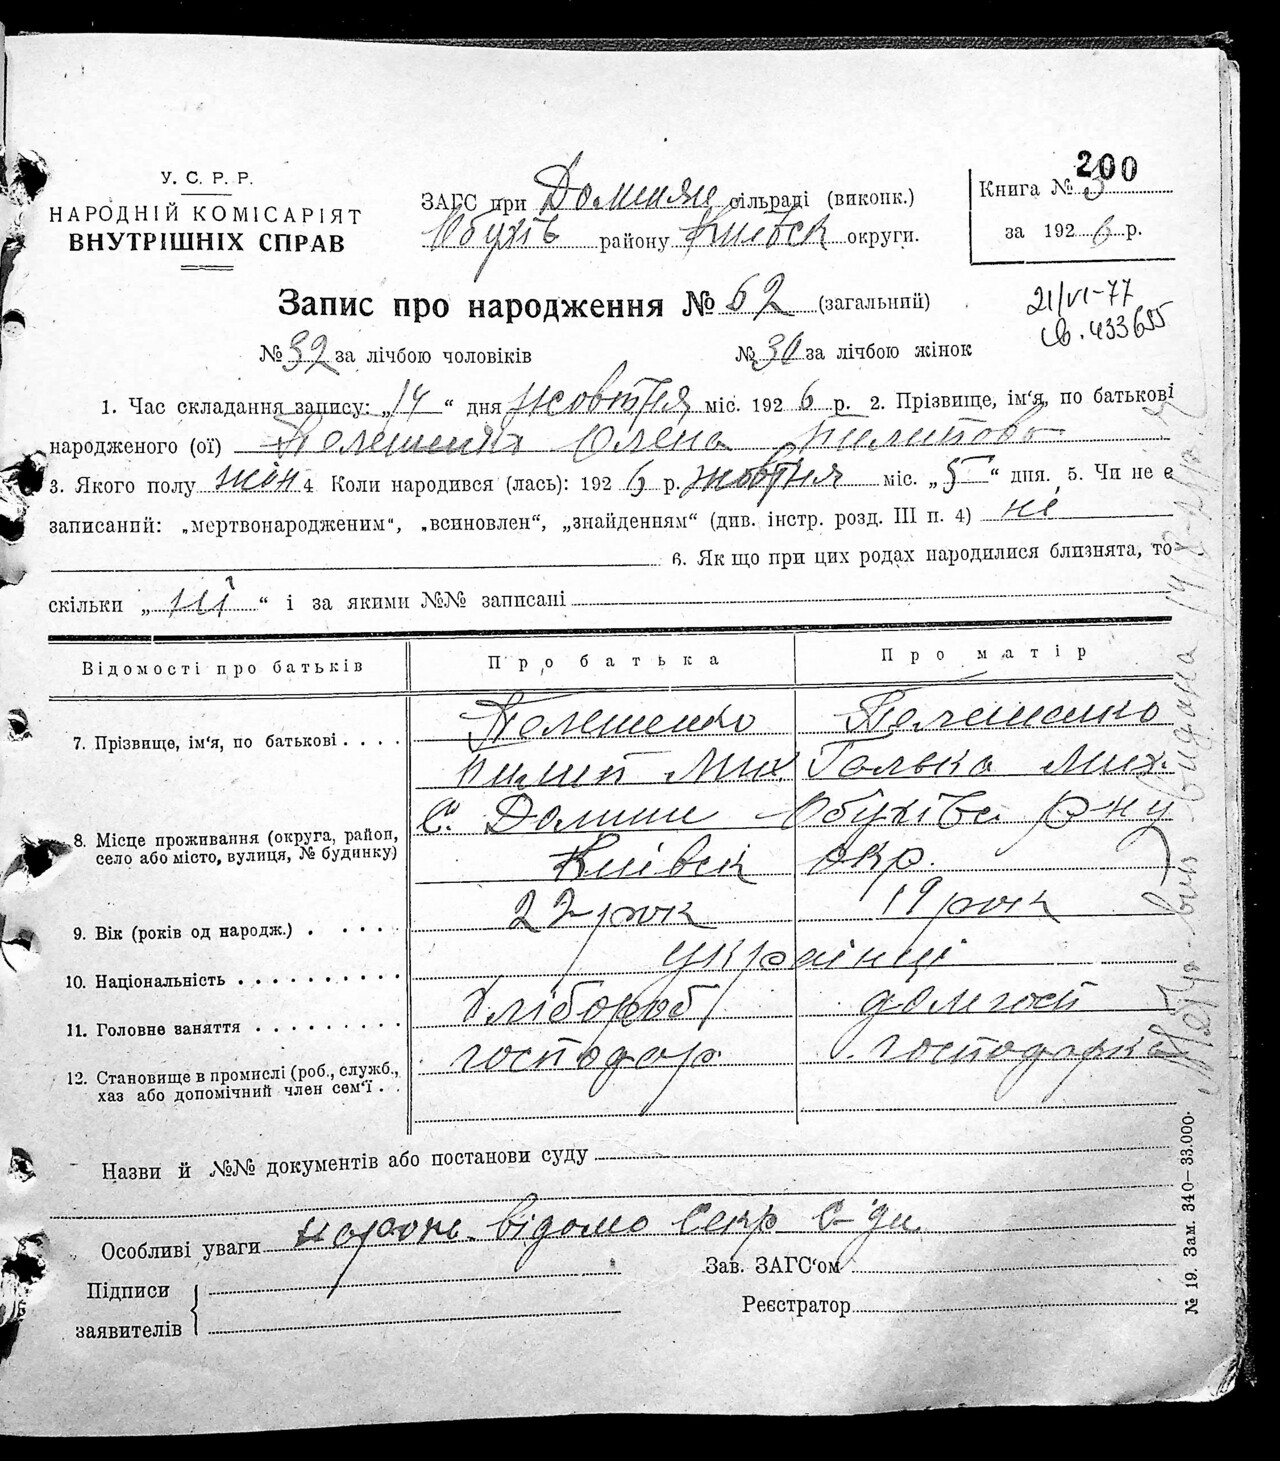 200
У. С. Р. Р.
НАРОДНІЙ КОМІСАРІЯТ
ВНУТРІШНІХ СПРАВ
ЗАГС при сільраді (виконк.)
Обухів району Київськ округи.
Книга № 3
за 1926 р.
21/VI-77
св. 433655
Запис про народження № 62 (загальний)
№ 32 за лічбою чоловіків № 30 за лічбою жінок
1. Час складання запису: „14“ дня жовтня міс. 1926 р. 2. Прізвище, ім‘я, по батькові
народженого (ої) Олена Пилипова
3. Якого полу жін 4 Коли народився (лась): 1926 р. жовтня міс. „5“ дня. 5. Чи не є
записаний: „мертвонародженим“, „всиновлен“, „знайденням“ (див. інстр. розд. III п. 4) ні
6. Як що при цих родах народилися близнята, то
скільки „ні“ і за якими №№ записані
Відомості про батьків Про батька Про матір
7. Прізвище, ім‘я, по батькові
Пилип Мих. Галька Мих.
8. Місце проживання (округа, район, село або місто, вулиця, № будинку)
С. Долини Обухівс. р-ну
Київськ окр.
9. Вік (років од народж.) 22 рок 19 рок
10. Національність українці
11. Головне заняття Хлібороб домгосп
12. Становище в промислі (роб., служб., хаз або допомічний член сем‘ї господар господарка
Назви й №№ документів або постанови суду
Особливі уваги відомо Секр с-ди
Підписи
заявителів
Зав. ЗАГС‘ом
Реєстратор
№ 19. Зам. 340—33.000.